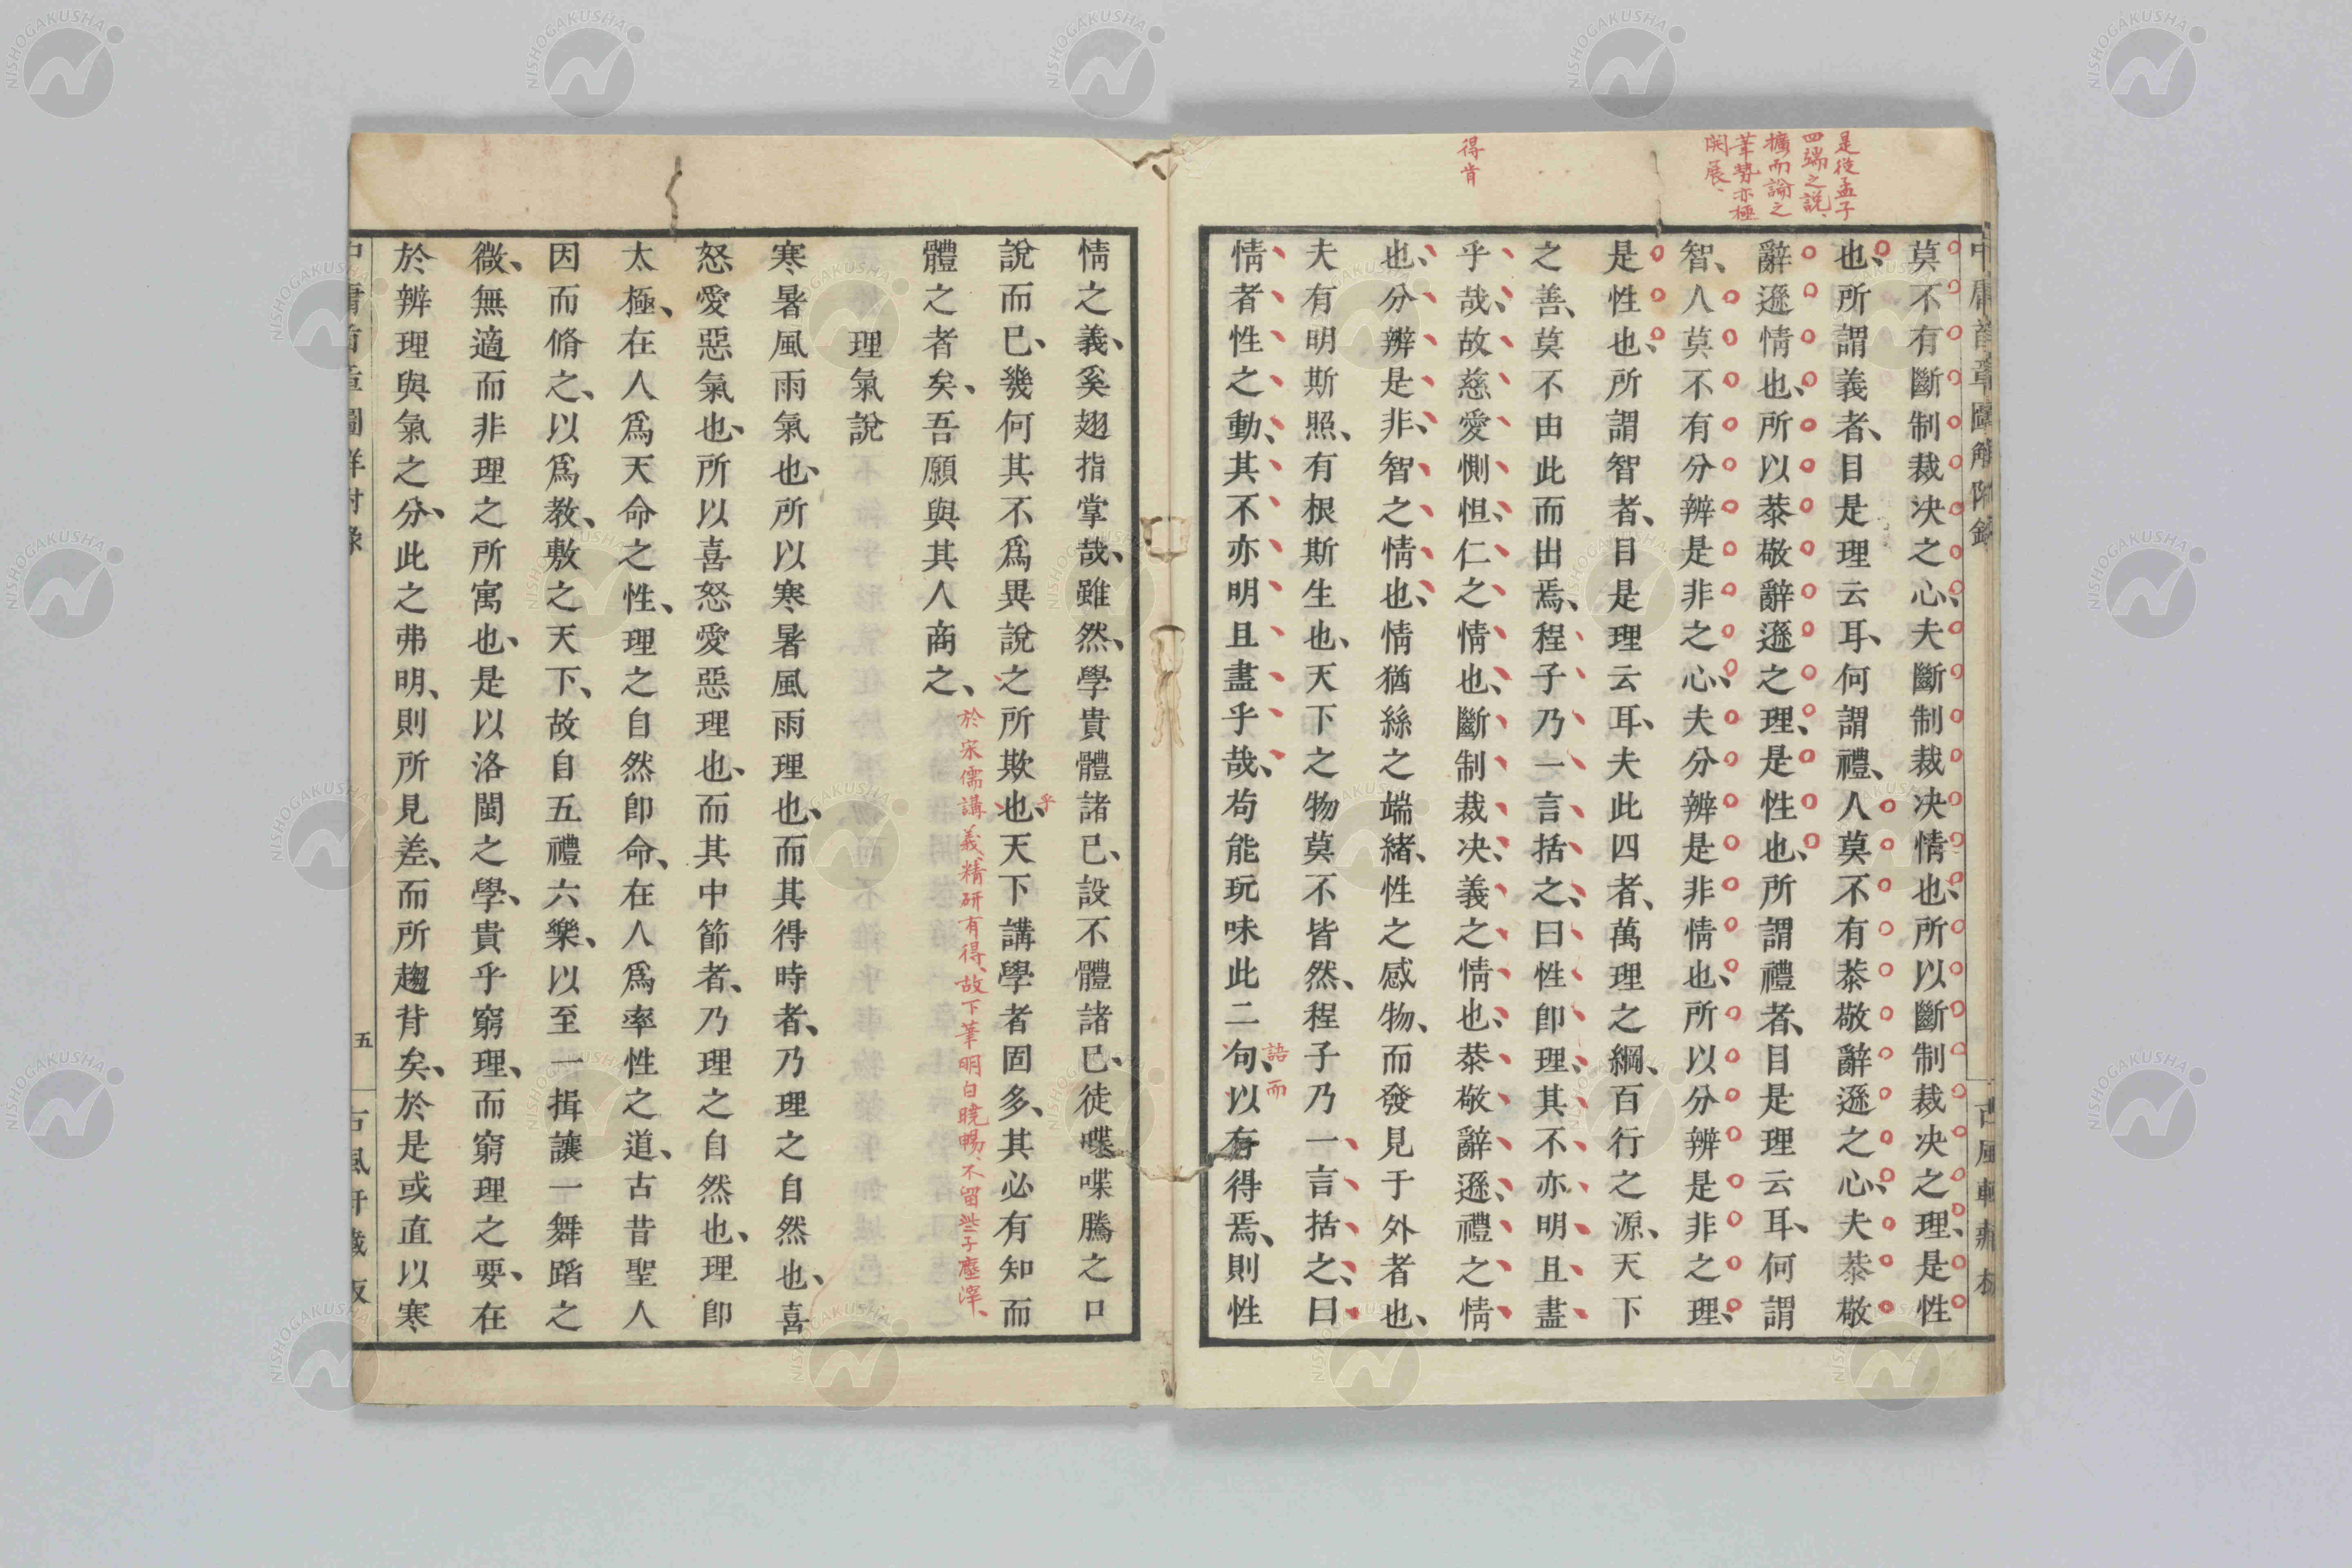 是從孟子
四端之説、
擴而論之
筆勢亦極
開展、
得肯
中庸首章圖解附錄
古風軒藏板
莫不有斷制裁决之心、夫斷制裁决情也、所以斷制裁决之理、是性
也、所謂義者、目是理云耳、何謂禮、人莫不有㳟敬辭遜之心、夫㳟敬
辭遜情也、所以㳟敬辭遜之理、是性也、所謂禮者、目是理云耳、何謂
智、人莫不有分辨是非之心、夫分辨是非情也、所以分辨是非之理、
是性也、所謂智者、目是理云耳、夫此四者、萬理之綱、百行之源、天下
之善、莫不由此而出焉、程子乃一言括之、曰性卽理、其不亦明且盡
乎哉、故慈愛惻怛、仁之情也、斷制裁决、義之情也、㳟敬辭遜、禮之情
也、分辨是非、智之情也、情猶絲之端緒、性之感物、而發見于外者也、
夫有明斯照、有根斯生也、天下之物莫不皆然、程子乃一言括之、曰
情者性之動、其不亦明且盡乎哉、苟能玩味此二句、以有得焉、則性
語而
情之義、奚翅指掌哉、雖然、學貴體諸己、設不體諸己、徒喋喋騰之口
說而已、幾何其不爲異說之所欺也、天下講學者固多、其必有知而
乎
體之者矣、吾願與其人商之、
於宋儒講義、精研有得、故下筆明白曉暢、不留些子塵滓、
理氣說
寒暑風雨氣也、所以寒暑風雨理也、而其得時者、乃理之自然也、喜
怒愛惡氣也、所以喜怒愛惡理也、而其中節者、乃理之自然也、理卽
太極、在人爲天命之性、理之自然卽命、在人爲率性之道、古昔聖人
因而脩之、以爲教、敷之天下、故自五禮六樂、以至一揖讓一舞蹈之
微、無適而非理之所寓也、是以洛閩之學、貴乎窮理、而窮理之要、在
於辨理與氣之分、此之弗明、則所見差、而所趨背矣、於是或直以寒
中庸首章圖解附錄
五
古風軒藏板